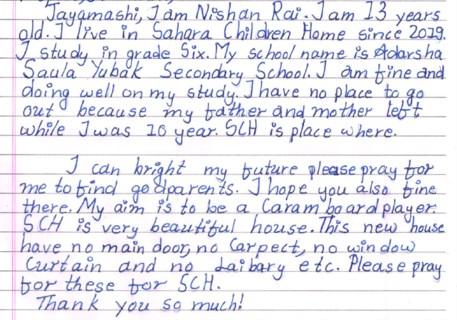 Jayamashi, I am Nishan Rai. I am 13 years
old. I live in Sahara Children Home since 2019.
I study in grade Six. My school name is Adarsha
Saula Yubak Secondary School. I am fine and
doing well on my study. I have no place to go
out because my father and mother left
while I was 10 year. SCH is place where.
I can bright my future please pray for
me to find godparents. I hope you also fine
there. My aim is to be a Caram board player.
SCH is very beautiful house. This new house
have no main door, no Carpect, no window
Curtain and no Laibary etc. Please pray
for these for SCH.
Thank you so much!